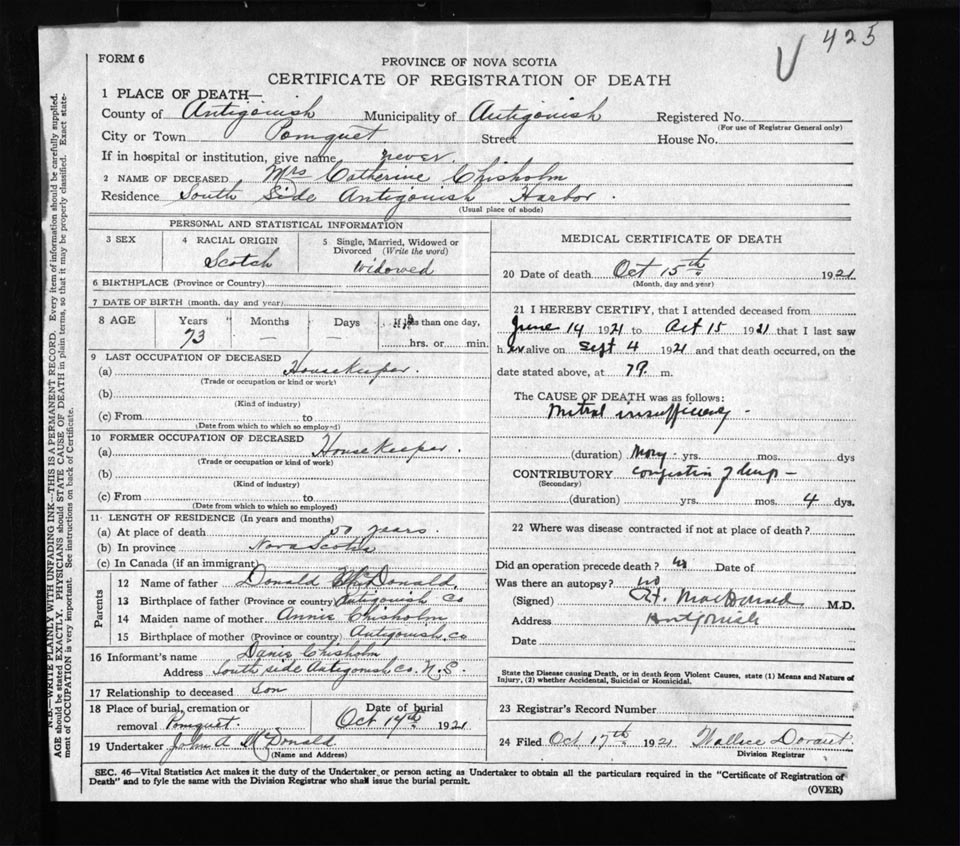 425
FORM 6
PROVINCE OF NOVA SCOTIA
CERTIFICATE OF REGISTRATION OF DEATH
1 PLACE OF DEATH—
County of Antigonish Municipality of Antigonish Registered No.
(For use of Registrar General only)
City or Town Pomquet Street House No.
If in hospital or institution, give name never.
2 NAME OF DECEASED Mrs Catherine Chisholm
Residence South Side Antigonish Harbor.
(Usual place of abode)
PERSONAL AND STATISTICAL INFORMATION
3 SEX 4 RACIAL ORIGIN 5 Single, Married, Widowed or Divorced (Write the word)
Scotch Widowed
6 BIRTHPLACE (Province or Country)
7 DATE OF BIRTH (month, day and year)
8 AGE Years Months Days If less than one day,
73 — — hrs. or min.
9 LAST OCCUPATION OF DECEASED
(a) Housekeeper.
(Trade or occupation or kind or work)
(b)
(Kind of industry)
(c) From to
(Date from which to which so employed)
10 FORMER OCCUPATION OF DECEASED
(a) Housekeeper.
(Trade or occupation or kind of work)
(b)
(Kind of industry)
(c) From to
(Date from which to which so employed)
11 LENGTH OF RESIDENCE (In years and months)
(a) At place of death 50 years.
(b) In province Nova Scotia
(c) In Canada (if an immigrant)
Parents
12 Name of father Donald McDonald
13 Birthplace of father (Province or country) Antigonish Co
14 Maiden name of mother Annie Chisholm
15 Birthplace of mother (Province or country) Antigonish, co
16 Informant's name Chisholm
Address South side Antigonish Co. N.S.
17 Relationship to deceased Son
18 Place of burial, cremation or removal Pomquet. Date of burial Oct 17th 1921
19 Undertaker John A McDonald
(Name and Address)
MEDICAL CERTIFICATE OF DEATH
20 Date of death Oct 15th 1921
(Month, day and year)
21 I HEREBY CERTIFY, that I attended deceased from
June 14 1921 to Oct 15 1921 that I last saw
her alive on Sept 4 1921 and that death occurred, on the
date stated above, at m.
The CAUSE OF DEATH was as follows:
Mitral insufficiency -
(duration) Many yrs. mos. dys
CONTRIBUTORY Congestion of lungs -
(Secondary)
(duration) yrs. mos. 4 dys.
22 Where was disease contracted if not at place of death?
Did an operation precede death? no Date of
Was there an autopsy? no
(Signed) MacDonald M.D.
Address Antigonish
Date
State the Disease causing Death, or in death from Violent Causes, state (1) Means and Nature of
Injury, (2) whether Accidental, Suicidal or Homicidal.
23 Registrar's Record Number
24 Filed Oct 17th 1921 Wallace
Division Registrar
SEC. 46—Vital Statistics Act makes it the duty of the Undertaker or person acting as Undertaker to obtain all the particulars required in the "Certificate of Registration of
Death" and to fyle the same with the Division Registrar who shall issue the burial permit.
(OVER)
N.B.—WRITE PLAINLY WITH UNFADING INK—THIS IS A PERMANENT RECORD. Every item of information should be carefully supplied.
AGE should be stated EXACTLY. PHYSICIANS should STATE CAUSE OF DEATH in plain terms, so that it may be properly classified. Exact state-
ment of OCCUPATION is very important. See instructions on back of Certificate.